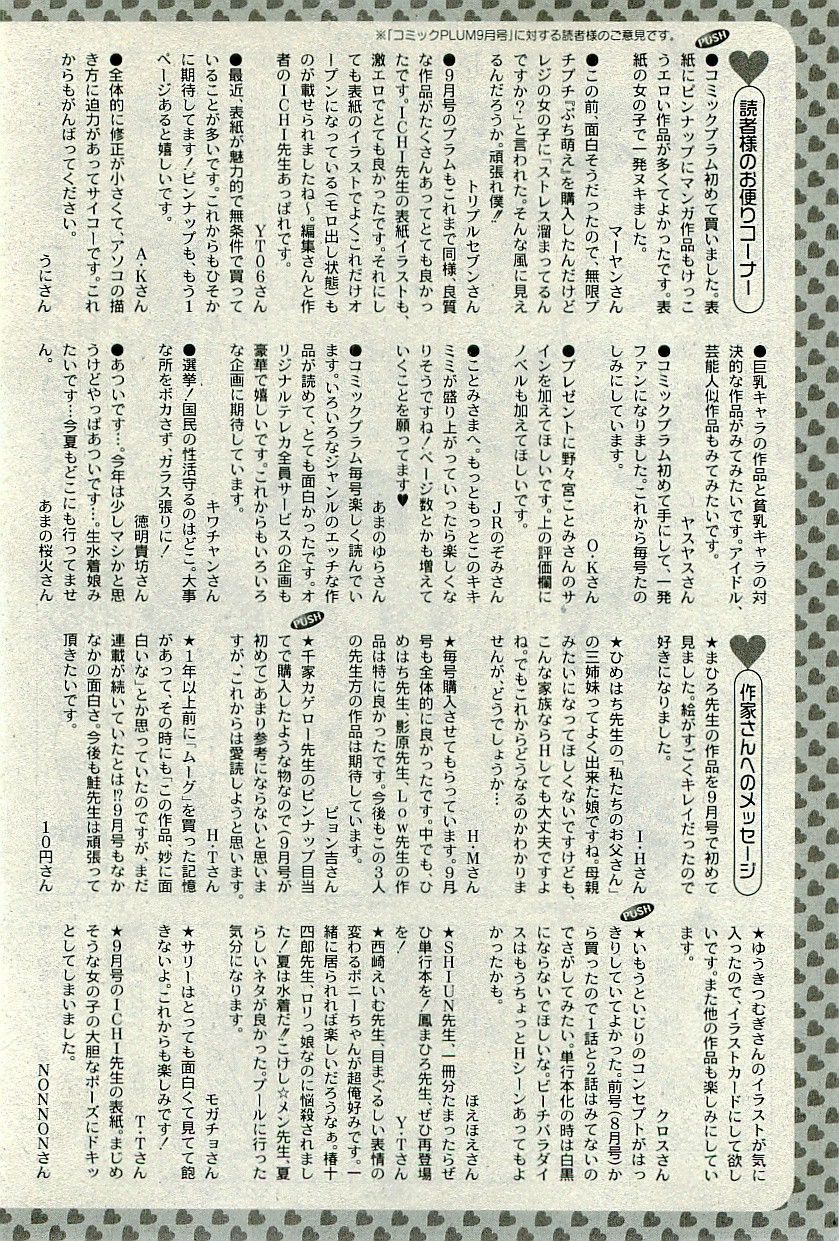 ※「コミックPLUM9月号」に対する読者様のご意見です。
読者様のお便りコーナー
PUSH
●コミックプラム初めて買いました。表
紙にピンナップにマンガ作品もけっこ
うエロい作品が多くてよかったです。表
紙の女の子で一発ヌキました。
マーヤンさん
●この前、面白そうだったので、無限プ
チプチ『ぷち萌え』を購入したんだけど
レジの女の子に「ストレス溜まってるん
ですか?」と言われた。そんな風に見え
るんだろうか。頑張れ僕!!
トリプルセブンさん
●9月号のプラムもこれまで同様、良質
な作品がたくさんあってとても良かっ
たです。ICHI先生の表紙イラストも、
激エロでとても良かったです。それにし
ても表紙のイラストでよくこれだけオ
ープンになっている(モロ出し状態)も
のが載せられましたね〜。編集さんと作
者のICHI先生あっぱれです。
YT06さん
●最近、表紙が魅力的で無条件で買って
いることが多いです。これからもひそか
に期待してます!ピンナップも、もう1
ページあると嬉しいです。
A・Kさん
●全体的に修正が小さくて、アソコの描
き方に迫力があってサイコーです。これ
からもがんばってください。
うにさん
●巨乳キャラの作品と貧乳キャラの対
決的な作品がみてみたいです。アイドル、
芸能人似作品もみてみたいです。
ヤスヤスさん
●コミックプラム初めて手にして、一発
ファンになりました。これから毎号たの
しみにしています。
O・Kさん
●プレゼントに野々宮ことみさんのサ
インを加えてほしいです。上の評価欄に
ノベルも加えてほしいです。
JRのぞみさん
●ことみさまへ。もっともっとこのキキ
ミミが盛り上がっていったら楽しくな
りそうですね!ページ数とかも増えて
いくことを願ってます♥
あまのゆらさん
●コミックプラム毎号楽しく読んでい
ます。いろいろなジャンルのエッチな作
品が読めて、とても面白かったです。オ
リジナルテレカ全員サービスの企画も
豪華で嬉しいです。これからもいろいろ
な企画に期待しています。
キワチャンさん
●選挙!国民の性活守るのはどこ。大事
な所をボカさず、ガラス張りに!
徳明貴坊さん
●あついです…。今年は少しマシかと思
うけどやっぱあついです…。生水着娘み
たいです…今夏もどこにも行ってませ
ん。
あまの桜火さん
作家さんへのメッセージ
★まひろ先生の作品を9月号で初めて
見ました。絵がすごくキレイだったので
好きになりました。
I・Hさん
★ひめはち先生の「私たちのお父さん」
の三姉妹ってよく出来た娘ですね。母親
みたいになってほしくないですけども、
こんな家族ならHしても大丈夫ですよ
ね。でもこれからどうなるのかわかりま
せんが、どうでしょうか…
H・Mさん
★毎号購入させてもらっています。9月
号も全体的に良かったです。中でも、ひ
めはち先生、影原先生、Low先生の作
品は特に良かったです。今後もこの3人
の先生方の作品は期待しています。
ピョン吉さん
PUSH
★千家カゲロー先生のピンナップ目当
てで購入したような物なので(9月号が
初めて)あまり参考にならないと思いま
すが、これからは愛読しようと思います。
H・Tさん
★1年以上前に「ムーグ」を買った記憶
があって、その時にも「この作品、妙に面
白いな」とか思っていたのですが、まだ
連載が続いていたとは!?9月号もなか
なかの面白さ。今後も鮭先生は頑張って
頂きたいです。
10円さん
★ゆうきつむぎさんのイラストが気に
入ったので、イラストカードにして欲し
いです。また他の作品も楽しみにしてい
ます。
クロスさん
PUSH
★いもうといじりのコンセプトがはっ
きりしていてよかった。前号(8月号)か
ら買ったので1話と2話はみてないの
でさがしてみたい。単行本化の時は白黒
にならないでほしいな。ビーチパラダイ
スはもうちょっとHシーンあってもよ
かったかも。
ほえほえさん
★SHIUN先生、一冊分たまったらぜ
ひ単行本を!鳳まひろ先生、ぜひ再登場
を!
Y・Tさん
★西崎えいむ先生、目まぐるしい表情の
変わるポニーちゃんが超俺好みです。一
緒に居られれば楽しいだろうなぁ。椿十
四郎先生、ロリっ娘なのに悩殺されまし
た!夏は水着だ!!こけし☆メン先生、夏
らしいネタが良かった。プールに行った
気分になります。
モガチョさん
★サリーはとっても面白くて見てて飽
きないよ。これからも楽しみです!
T・Tさん
★9月号のICHI先生の表紙。まじめ
そうな女の子の大胆なポーズにドキッ
としてしまいました。
NONNONさん